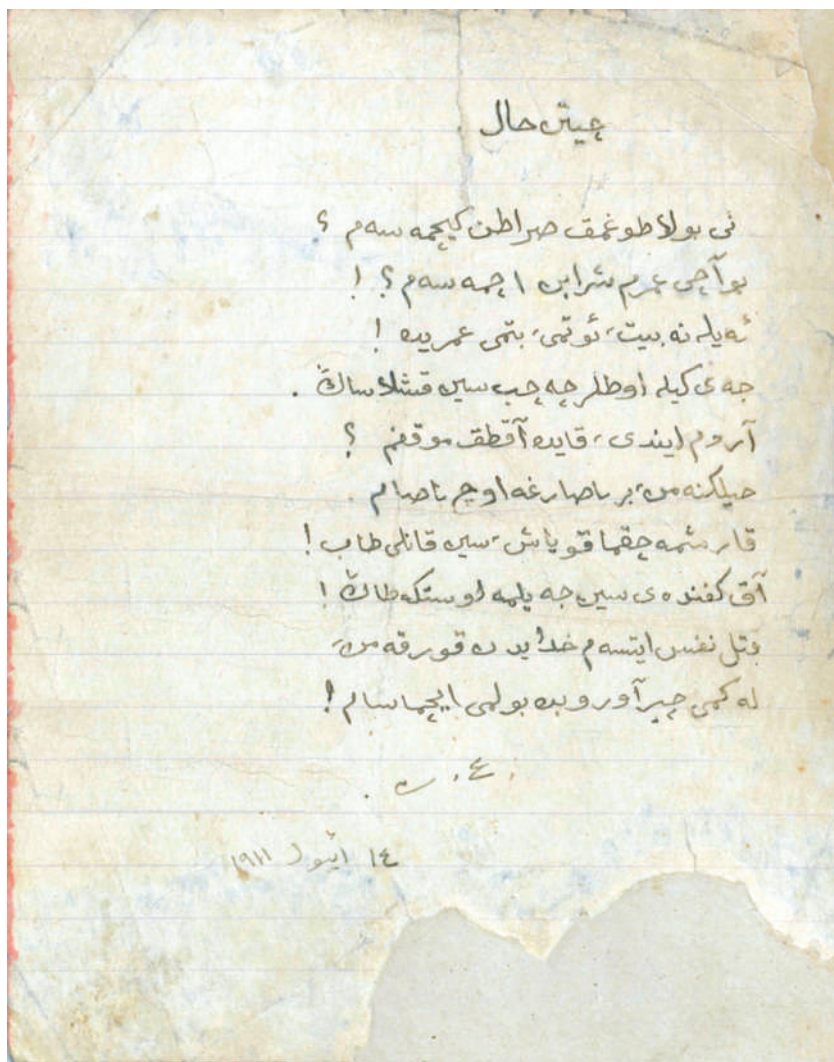 چیتن حال
نی بولا طوغمق صراطن کیچمه سه م ؟
بو آچی عمرم شرابن اچمه سه م ؟ !
ئه یله نه بیت، ئوتمی، بتمی عمریده !
جه ی کیله اوطلر چه چب سین قشلاساڭ .
آردم ایندی، قایده آقطق موقفم ؟
حیلکنه من، بر باصارغه اوچ باصام .
قارشمه چقما قویاش، سین قانلی طاب !
آق کفنده ی سین جه یلمه اوستکه طاڭ !
قتل نفس ایتسه م خدایدن قورقه من،
له کمی چیر آوروبده بولمی ایچماسام !
ع. ت .
١٤ اییول ١٩١١